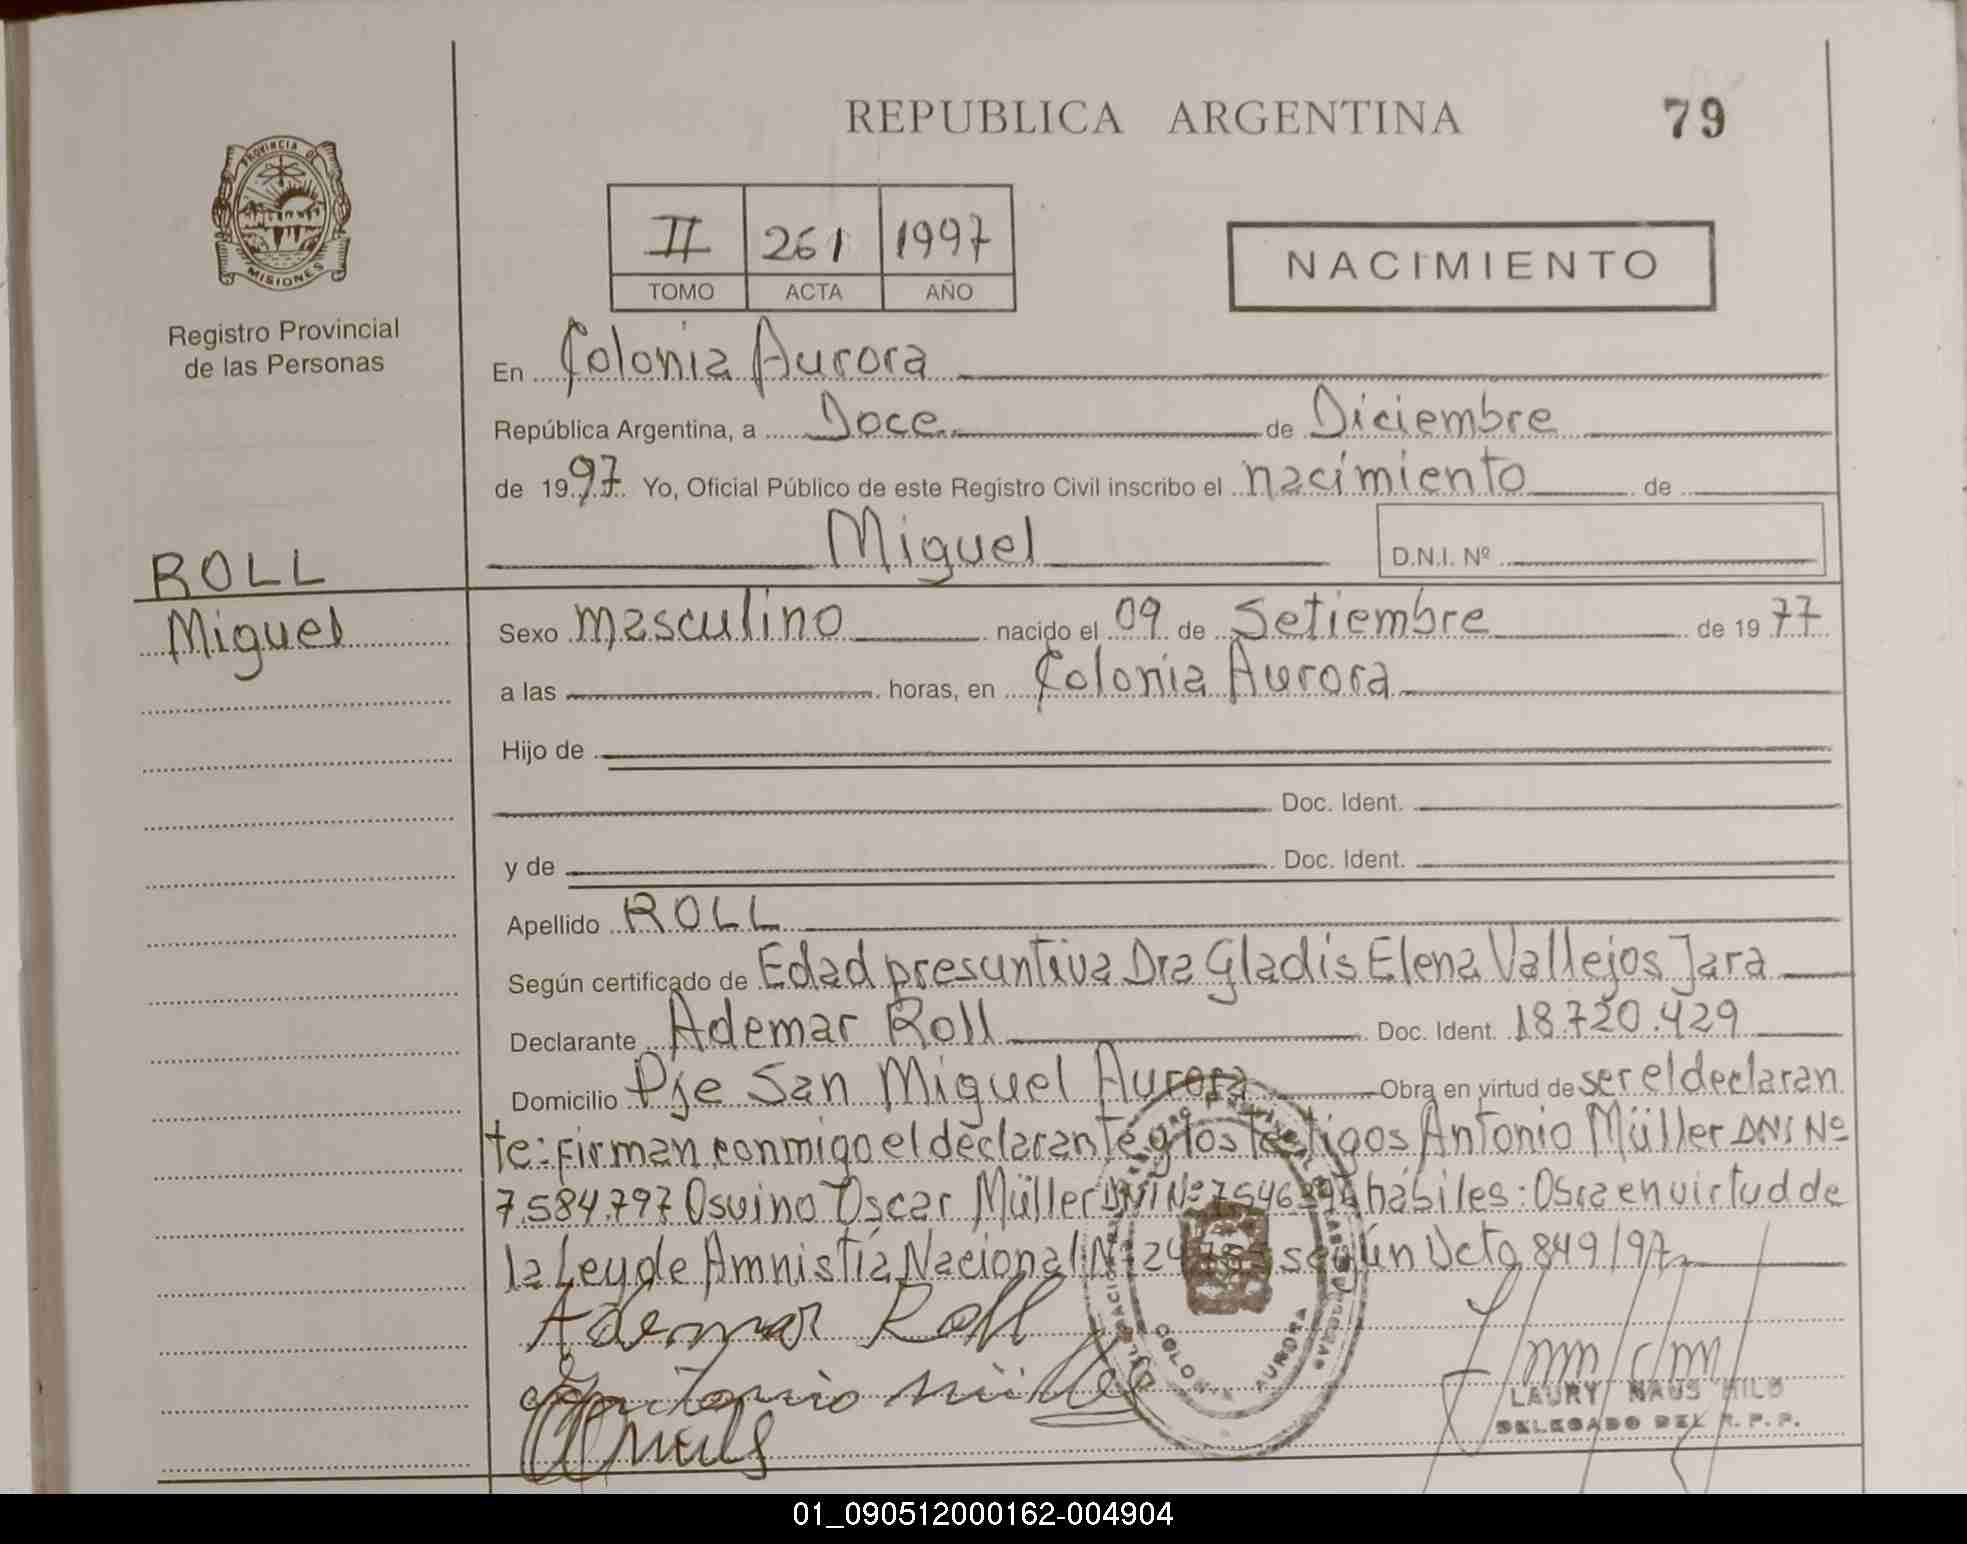 REPUBLICA ARGENTINA
79
PROVINCIA DE
MISIONES
Registro Provincial
de las Personas
II 261 1997
TOMO ACTA AÑO
NACIMIENTO
En Colonia Aurora
República Argentina, a Doce de Diciembre
de 1997 Yo, Oficial Público de este Registro Civil inscribo el nacimiento de
Miguel D.N.I. Nº
ROLL
Miguel
Sexo masculino nacido el 09 de Setiembre de 1977
a las horas, en Colonia Aurora
Hijo de
Doc. Ident.
y de Doc. Ident.
Apellido ROLL
Según certificado de Edad presuntiva Dra Gladis Elena Vallejos Jara
Declarante Ademar Roll Doc. Ident. 18.720.429
Domicilio Pje San Miguel Aurora Obra en virtud de ser el declaran
te: firman conmigo el declarante y los testigos Antonio Müller DNI Nº
7.584.797 Osvino Oscar Müller DNI Nº hábiles: Obra en virtud de
la Ley de Amnistía Nacional Nº según Dcto 849/97
Ademar Roll
Antonio Müller
COLONIA AURORA
LAURY NAUS HILD
DELEGADO DEL R.P.P.
01_090512000162-004904